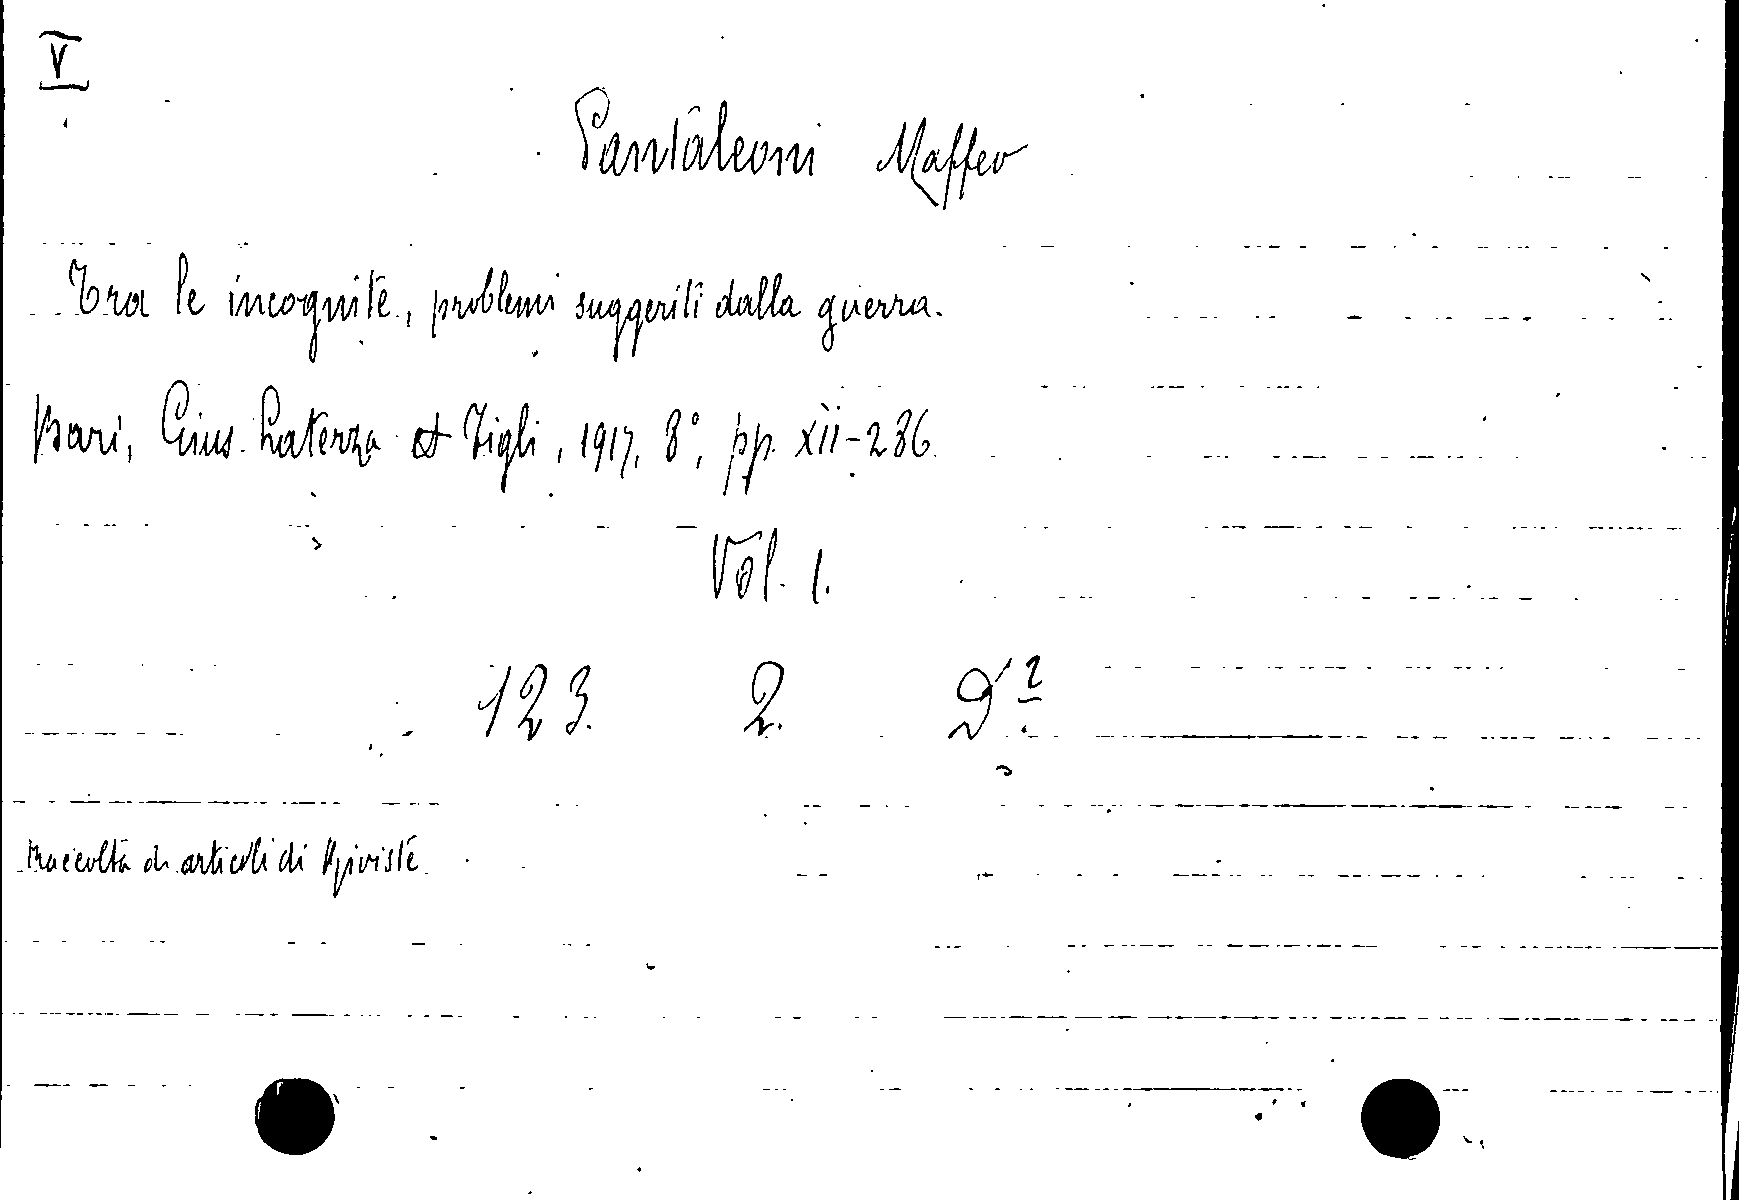 V
Pantaleoni Maffeo
Tra le incognite, problemi suggeriti dalla guerra.
Bari, Gius. Laterza & Figli, 1917, 8°, pp. XII-286.
Vol. 1.
123. 2. D²
Raccolta di articoli di Riviste